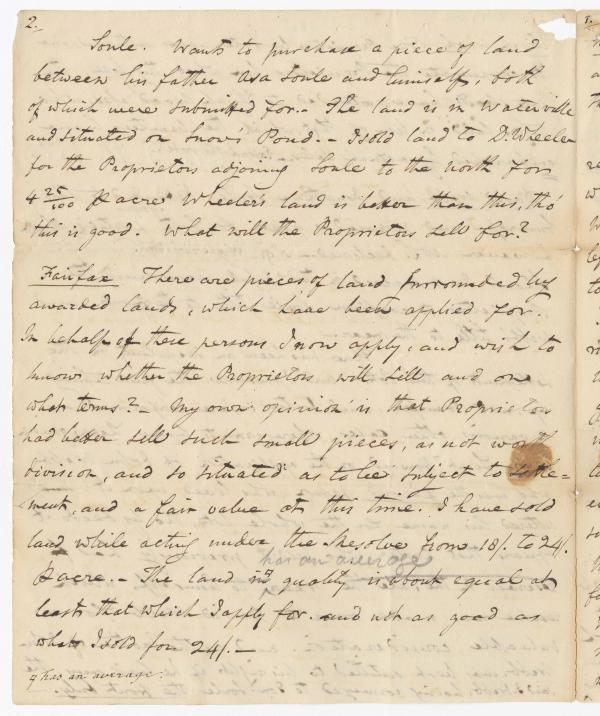 2.
Soule. Wants to purchase a piece of land
between his father Asa Soule and himself, both
of which were submitted for.- The land is in Waterville
and situated on Snow's Pond.- I sold land to D. Wheeler
for the Proprietors adjoining Soule to the north for
4 25/100 ⅌ acre Wheelers land is better than this, tho'
this is good. What will the Proprietors sell for?
Fairfax There are pieces of land surrounded by
awarded lands, which have been applied for.
In behalf of these persons I now apply, and wish to
know whether the Proprietors will sell and on
what terms?- My own opinion is that Proprietors
had better sell such small pieces, as not worth
division, and so situated as to be subject to settle=
ment, and a fair value at this time. I have sold
land while acting under the Resolve from 18/. to 24/.
has an average
⅌ acre.- The land in quality is about equal at
least that which I apply for. and not as good as
what I sold for 24/.-
has an average.